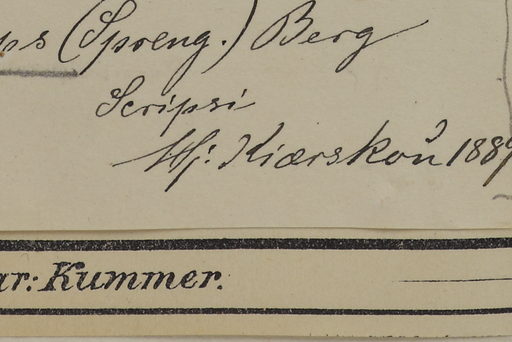 ps (Spreng.) Berg
Scripsi
Hj: Kiærskou 1889
ar: Kummer.